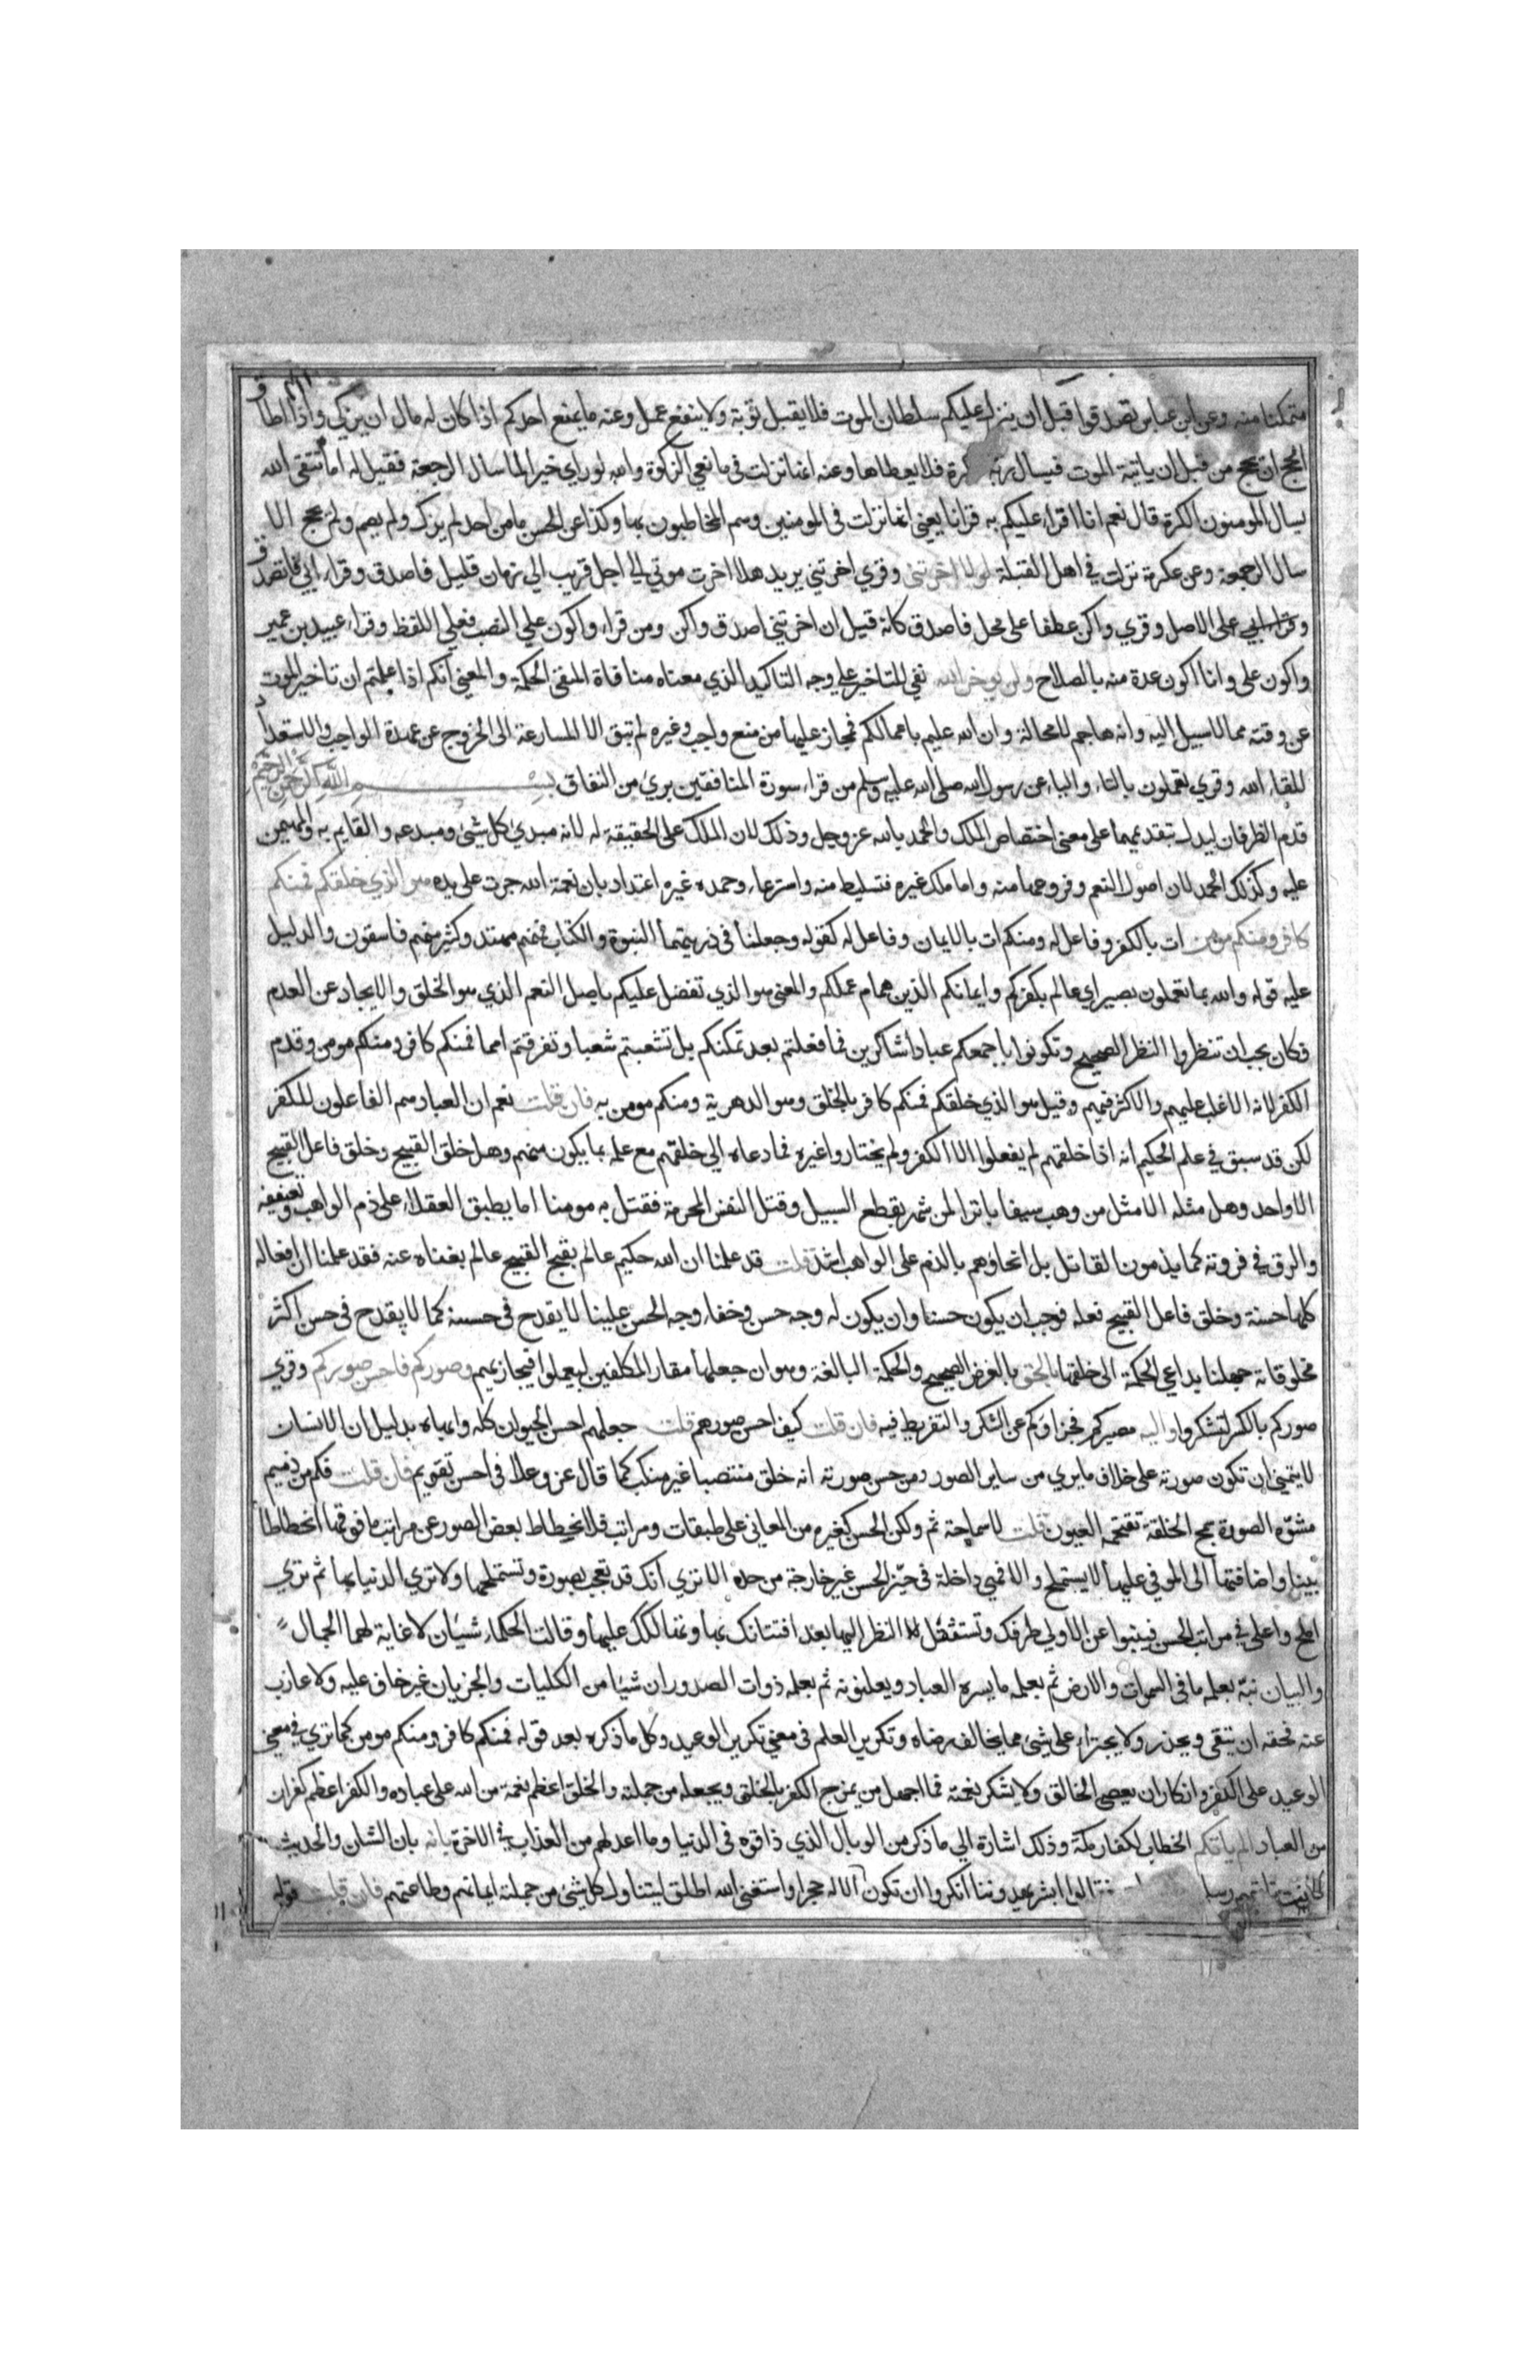 متمكنا منه وعن ابن عباس تصدقوا قبل ان ينزل عليكم سلطان الموت فلا يقبل توبة ولا ينفع عمل وعنه ما يمنع احدكم اذا كان له مال ان يزكي واذا اطاق
الحج ان يحج من قبل ان ياتيه الموت فيسال ربه الكرة فلا يعطاها وعنه انها نزلت في مانعي الزكوة والله لو راي خيرا لما سال الرجعة فقيل له اما تتقي الله
يسال المومنون الكرة قال نعم انا اقراء عليكم به قرانا يعني انها نزلت في المومنين وهم المخاطبون بها وكذا عن الحسن ما من احد لم يزك ولم يصم ولم يحج الا
سال الرجعة وعن عكرمة نزلت في اهل القبلة لولا اخرتني وقري اخرتني يريد هلا اخرت موتي الي اجل قريب الي زمان قليل فاصدق وقراء ابي فاتصدق
على الاصل وقري واكن عطفا على محل فاصدق كانه قيل ان اخرتني اصدق واكن ومن قراء واكون علي النصب فعلي اللفظ وقراء عبيد بن عمير
واكون على وانا اكون عدة منه بالصلاح ولن يوخر الله نفي للتاخير علي وجه التاكيد الذي معناه منافاة المنفى الحكمة والمعنى انكم اذا علمتم ان تاخير الموت
عن وقته مما لا سبيل اليه وانه هاجم لا محالة وان الله عليم باعمالكم فمجاز عليها من منع واجب وغيره لم تبق الا المسارعة الى الخروج عن عهدة الواجب والاستعداد
للقاء الله وقري تعملون بالتاء والياء عن رسول الله صلى الله عليه وسلم من قراء سورة المنافقين بري من النفاق بسم الله الرحمن الرحيم
قدم الظرفان ليدل بتقديمهما على معنى اختصاص الملك والحمد بالله عز وجل وذلك لان الملك على الحقيقة له لانه مبدي كل شيئ ومبدعه والقايم به والمهيمن
عليه وكذلك الحمد لان اصول النعم وفروعها منه واما ملك غيره فتسليط منه واسترعاء وحمده غيره اعتداد بان نعمة الله جرت على يده هو الذي خلقكم فمنكم
كافر ومنكم مومن ات بالكفر وفاعل له ومنكم ات بالايمان وفاعل له كقوله وجعلنا في ذريتهما النبوة والكتاب فمنهم مهتد وكثير منهم فاسقون والدليل
عليه قوله والله بما تعملون بصير اي عالم بكفركم وايمانكم الذين هما من عملكم والمعنى هو الذي تفضل عليكم باصل النعم الذي هو الخلق والايجاد عن العدم
فكان يجب ان تنظروا النظر الصحيح وتكونوا باجمعكم عبادا شاكرين فما فعلتم بعد تمكنكم بل تشعبتم شعبا وتفرقتم امما فمنكم كافر ومنكم مومن وقدم
الكفر لانه الاغلب عليهم والاكثر فيهم وقيل هو الذي خلقكم فمنكم كافر بالخلق وهو الدهرية ومنكم مومن به فان قلت نعم ان العباد هم الفاعلون للكفر
لكن قد سبق في علم الحكيم انه اذا خلقهم لم يفعلوا الا الكفر ولم يختاروا غيره فما دعاه الي خلقهم مع علمه بما يكون منهم وهل خلق القبيح وخلق فاعل القبيح
الا واحد وهل مثله الا مثل من وهب سيفا باترا لمن شهر بقطع السبيل وقتل النفس المحرمة فقتل به مومنا اما يطبق العقلاء على ذم الواهب وتعنيفه
والدق في فروته كما يذمون القاتل بل انحاوهم بالذم على الواهب اشد قلت قد علمنا ان الله حكيم عالم بقبح القبيح عالم بغناه عنه فقد علمنا ان افعاله
كلها حسنة وخلق فاعل القبيح فعله فوجب ان يكون حسنا وان يكون له وجه حسن وخفاء وجه الحسن علينا لا يقدح في حسنه كما لا يقدح في حسن اكثر
مخلوقاته جهلنا بداعي الحكمة الى خلقها بالحق بالغرض الصحيح والحكمة البالغة وهو ان جعلها مقار المكلفين ليعملوا فيجازيهم وصوركم فاحسن صوركم وقري
صوركم بالكسر لتشكروا واليه مصيركم فجزاوكم عن الشكر والتفريط فيه فان قلت كيف احسن صورهم قلت جعلهم احسن الحيوان كله وابهاه بدليل ان الانسان
لا يتمنى ان تكون صورته على خلاف ما يري من ساير الصور ومن حسن صورته انه خلق منتصبا غير منكب كما قال عز وعلا في احسن تقويم فان قلت فكم من دميم
مشوه الصورة سمج الخلقة تقتحمه العيون قلت لا سماجة ثم ولكن الحسن كغيره من المعاني على طبقات ومراتب فلانحطاط بعض الصور عن مراتب ما فوقها انحطاطا
بينا واضافتها الى الموفي عليها لا يستملح والا فهي داخلة في حيز الحسن غير خارجة من حده الا تري انك قد تعجب بصورة وتستملحها ولا تري الدنيا بها ثم تري
املح واعلى في مراتب الحسن فينبوا عن الاولي طرفك وتستثقل النظر اليها بعد افتتانك بها وتهالكك عليها وقالت الحكماء شيئان لا غاية لهما الجمال
والبيان نبه بعلمه ما في السموات والارض ثم بعلمه ما يسره العباد ويعلنونه ثم بعلمه ذوات الصدور ان شيئا من الكليات والجزيات غير خاف عليه ولا عازب
عنه فحقه ان يتقى ويحذر ولا يجتراء على شيئ مما يخالف رضاه وتكرير العلم في معني تكرير الوعيد وكل ما ذكره بعد قوله فمنكم كافر ومنكم مومن كما تري في معنى
الوعيد على الكفر وانكار ان يعصى الخالق ولا يشكر نعمته فما اجهل من يمزج الكفر بالخلق ويجعله من جملته والخلق اعظم نعمة من الله على عباده والكفر اعظم كفران
من العباد الم ياتكم الخطاب لكفار مكة وذلك اشارة الي ما ذكر من الوبال الذي ذاقوه في الدنيا وما اعد لهم من العذاب في الاخرة بانه بان الشان والحديث
كانت تاتيهم رسلهم ابشر يهدوننا انكروا ان تكون الاله حجرا واستغنى الله اطلق ليتناول كل شيئ من جملته ايمانهم وطاعتهم فان قلت قوله